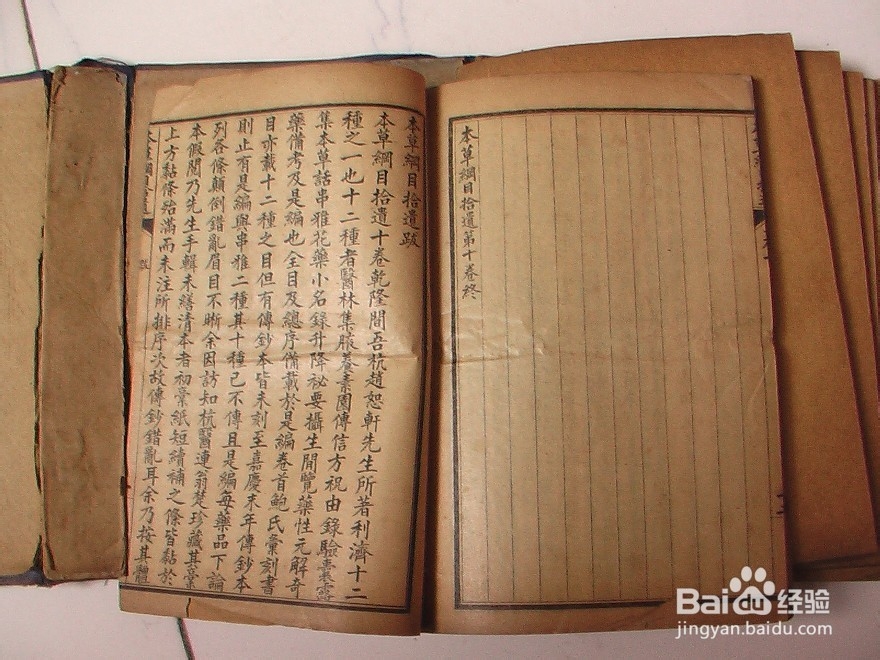 本草綱目拾遺第十卷終
本草綱目拾遺跋
本草綱目拾遺十卷乾隆間吾杭趙恕軒先生所著利濟十二
種之一也十二種者醫林集腋養素園傳信方祝由錄驗囊露
集本草話串雅花藥小名錄升降祕要攝生閒覽藥性元解奇
藥備考及是編也全目及總序備載於是編卷首鮑氏彙刻書
目亦載十二種之目但有傳鈔本皆未刻至嘉慶末年傳鈔本
則止有是編與串雅二種其十種已不傳且是編每藥品下論
列各條顛倒錯亂眉目不晰余因訪知杭醫連翁楚珍藏其稾
本假閱乃先生手輯未繕清本者初稾紙短續補之條皆黏於
上方黏條殆滿而未注所排序次故傳鈔錯亂耳余乃按其體
本草綱目拾遺
跋
Bai 经验
jingyan.baidu.com